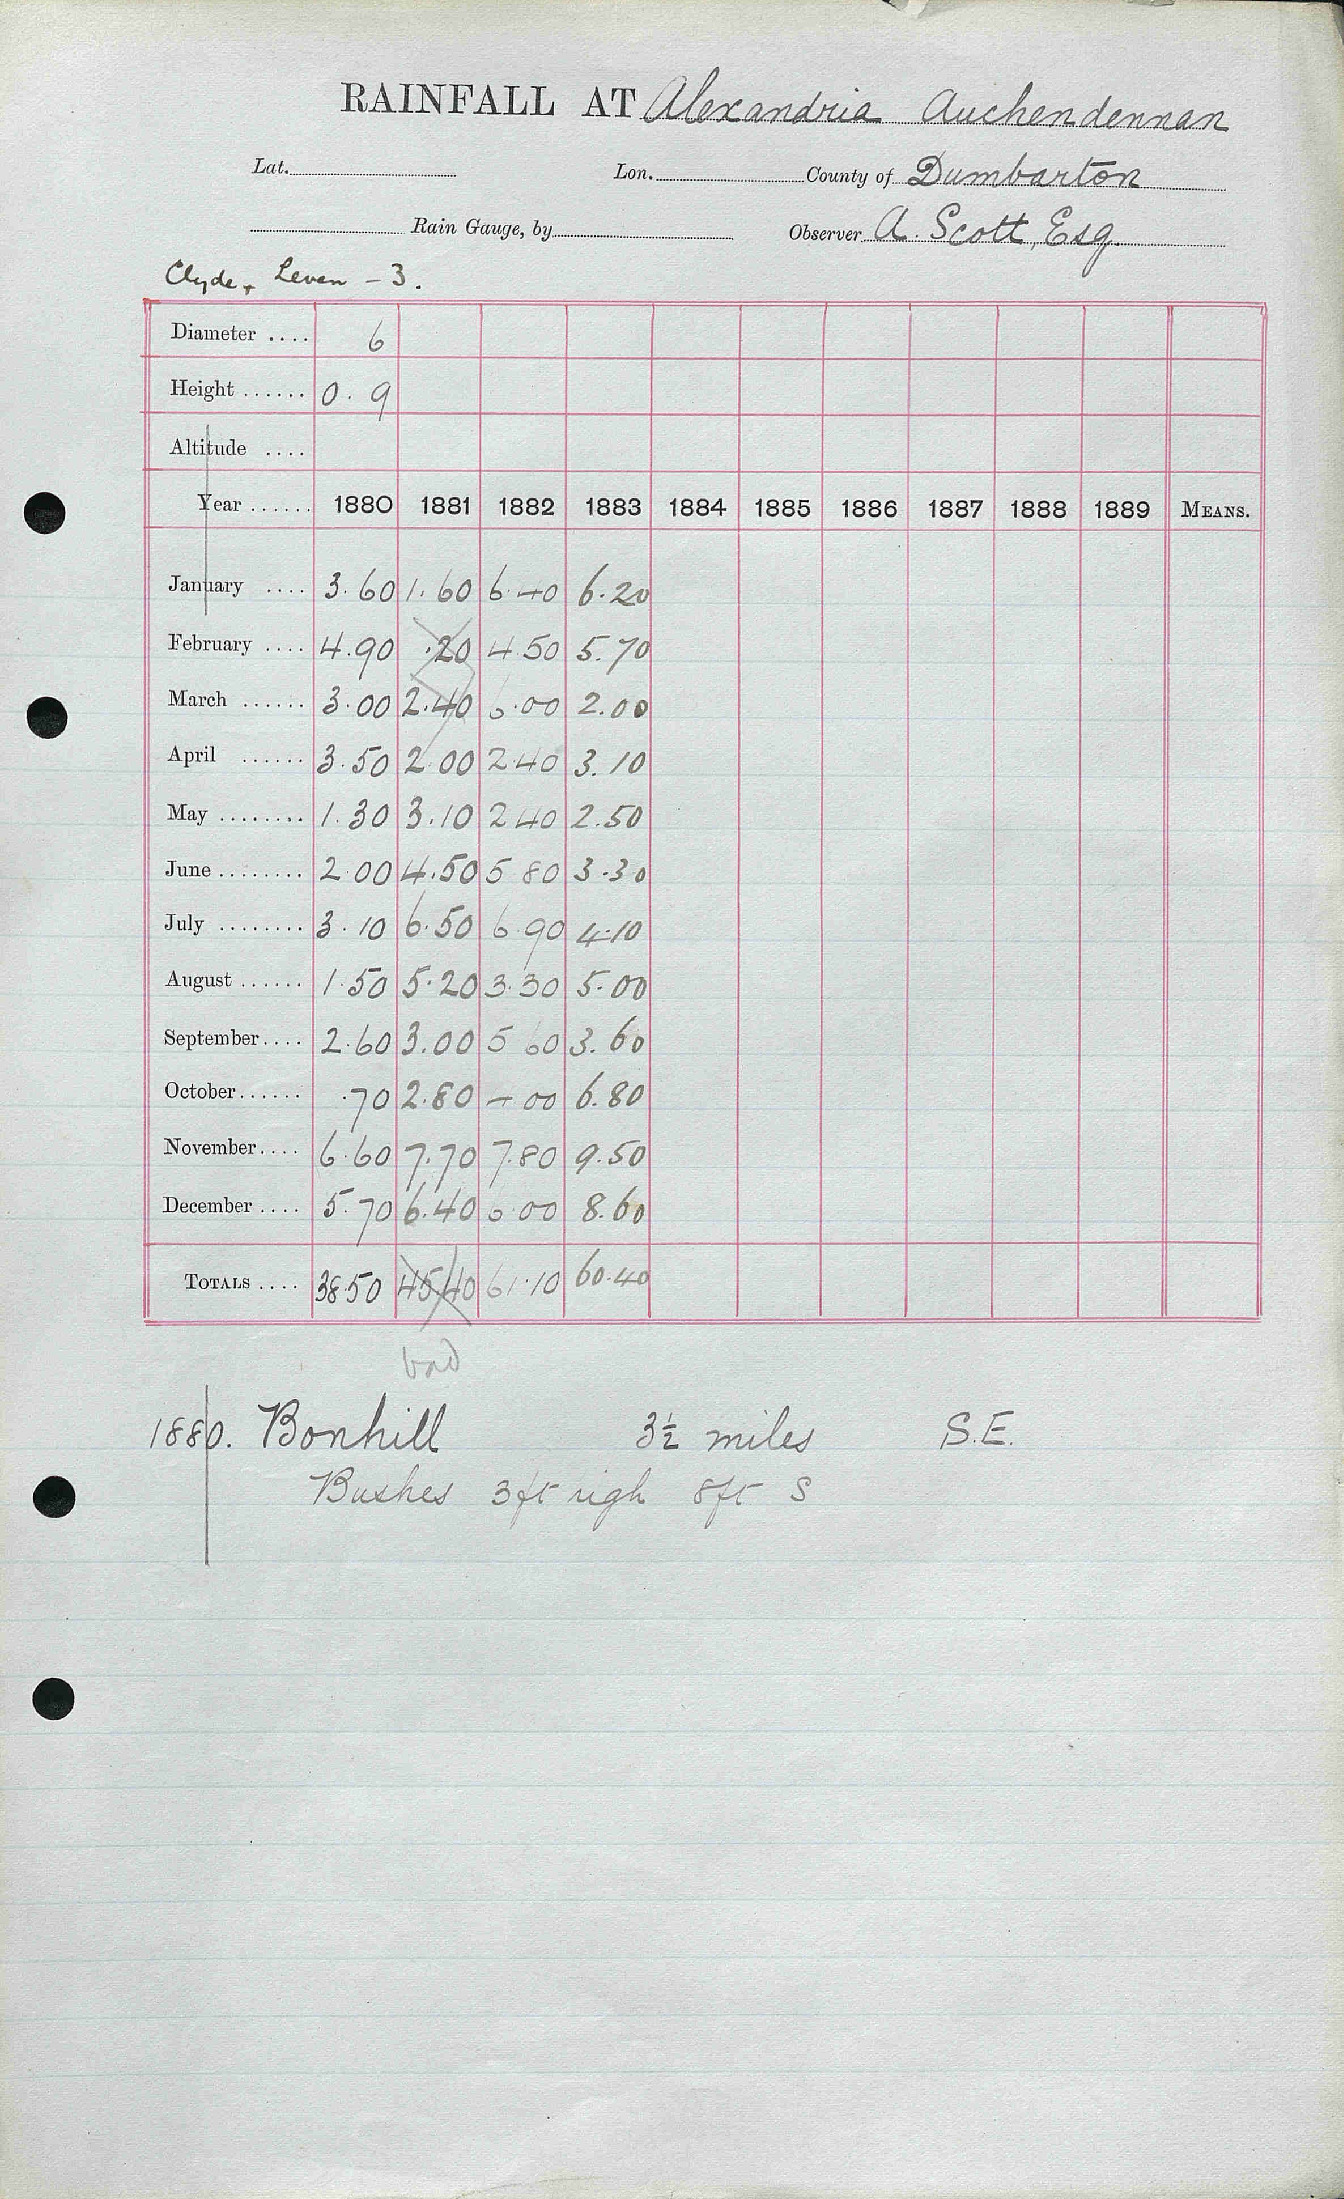 RAINFALL AT Alexandria Auchendennan
Lat. Lon. County of Dumbarton
Rain Gauge, by Observer A. Scott, Esq
Clyde, Leven - 3.
Diameter .... 6
Height ...... 0. 9
Altitude ....
Year ...... 1880 1881 1882 1883 1884 1885 1886 1887 1888 1889 MEANS.
January .... 3.60 1.60 6.40 6.20
February .... 4.90 .20 4.50 5.70
March ...... 3.00 2.40 6.00 2.00
April ...... 3.50 2.00 2.40 3.10
May ........ 1.30 3.10 2.40 2.50
June ........ 2.00 4.50 5.80 3.30
July ........ 3.10 6.50 6.90 4.10
August ...... 1.50 5.20 3.30 5.00
September .... 2.60 3.00 5.60 3.60
October ...... .70 2.80 4.00 6.80
November .... 6.60 7.70 7.80 9.50
December .... 5.70 6.40 6.00 8.60
TOTALS .... 38.50 45.40 61.10 60.40
bad
1880. Bonhill 3½ miles S.E.
Bushes 3ft high 8ft S